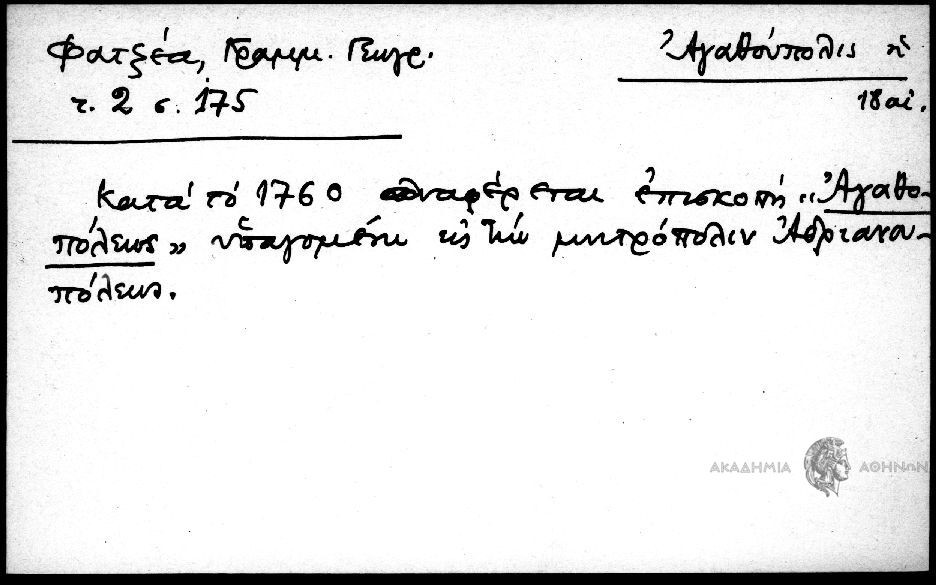 Φατζέα, Γραμμ. Γεωγρ.
τ. 2 σ. 175
Ἀγαθούπολις ἡ
18 αἰ.
Κατά τό 1760 ἀναφέρεται ἐπισκοπή „Ἀγαθο-
πόλεως” ὑπαγομένη εἰς τήν μητρόπολιν Ἀδριανου-
πόλεως.
ΑΚΑΔΗΜΙΑ ΑΘΗΝΩΝ